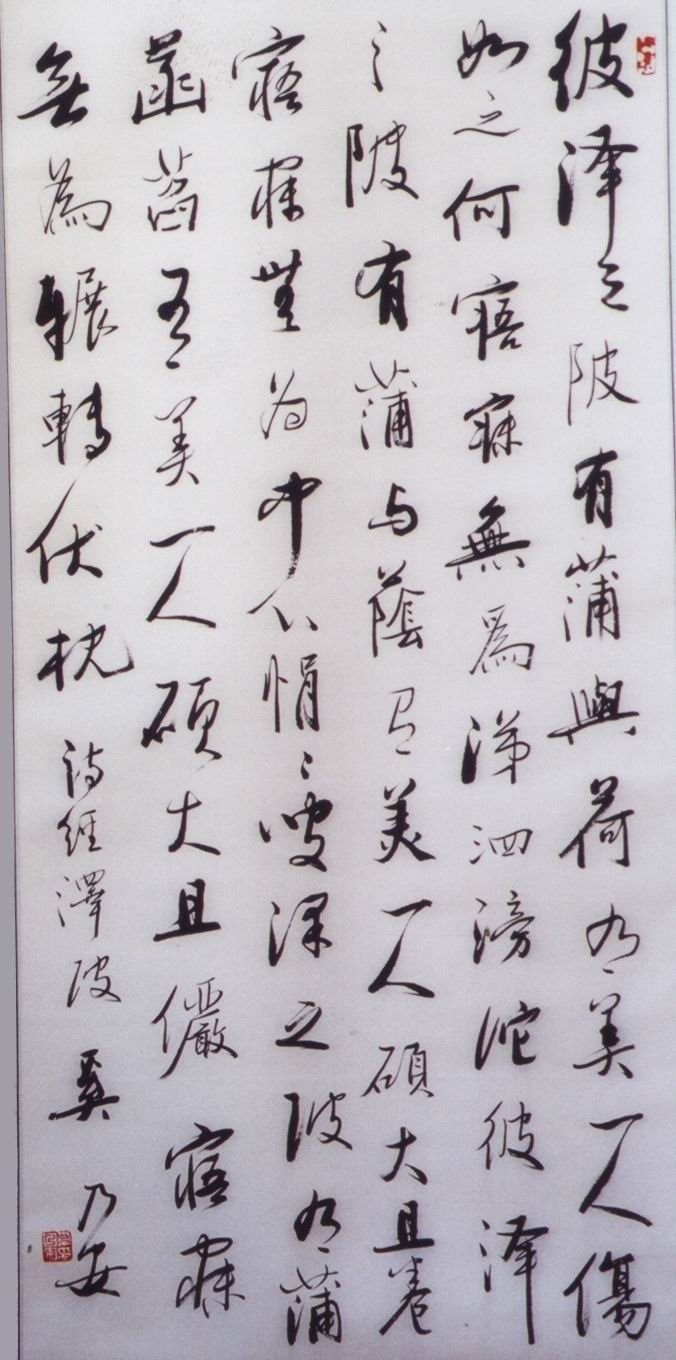 彼泽之陂有蒲與荷有美一人傷
如之何寤寐無爲涕泗滂沱彼泽
之陂有蒲与蔭有美一人碩大且卷
寤寐無为中心悁〻彼泽之陂有蒲
菡萏有美一人碩大且儼寤寐
無為輾轉伏枕 詩經澤陂 乃安